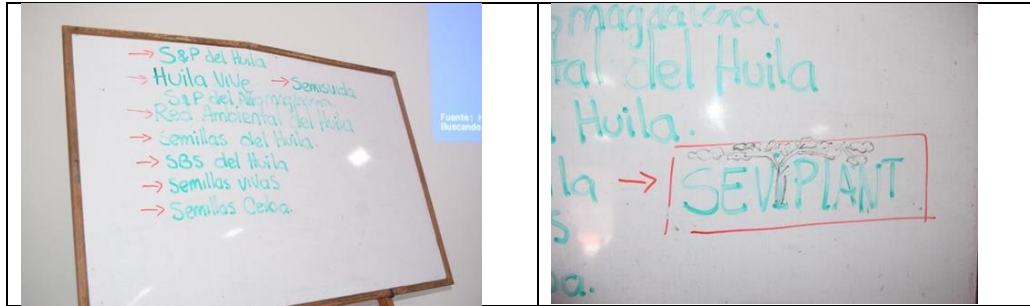 → S&P del Huila
→ Huila Vive → Semisvida
S&P del Alto magdalena
→ Red Ambiental del Huila
→ Semillas del Huila.
→ SBS del Huila
→ Semillas vivas
→ Semillas Ceiba.
Fuente:
Buscando
magdalena.
tal del Huila
Huila.
la →
SEVIPLANT
s
a.